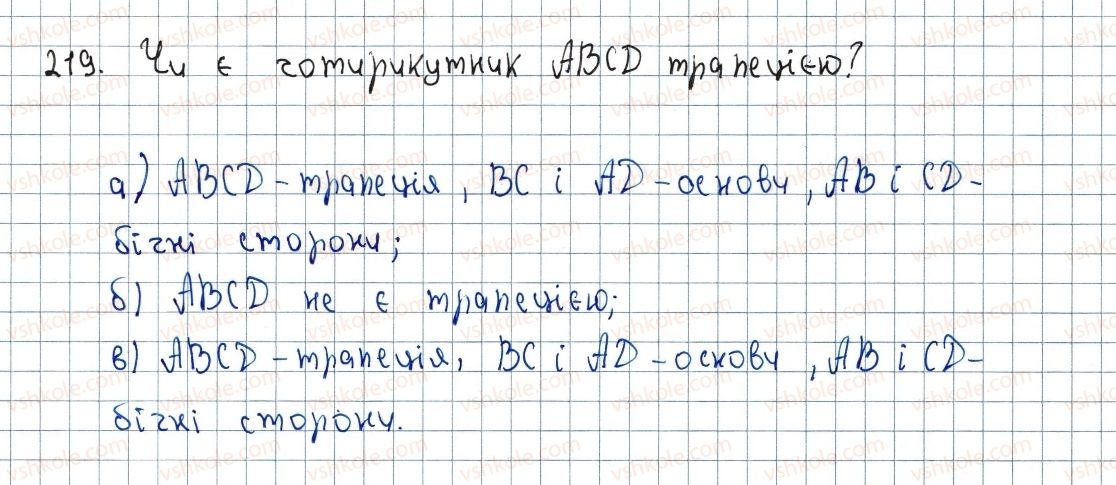 219. Чи є чотирикутник ABCD трапецією?
а) ABCD - трапеція, BC і AD - основи, AB і CD -
бічні сторони;
б) ABCD не є трапецією;
в) ABCD - трапеція, BC і AD - основи, AB і CD -
бічні сторони.